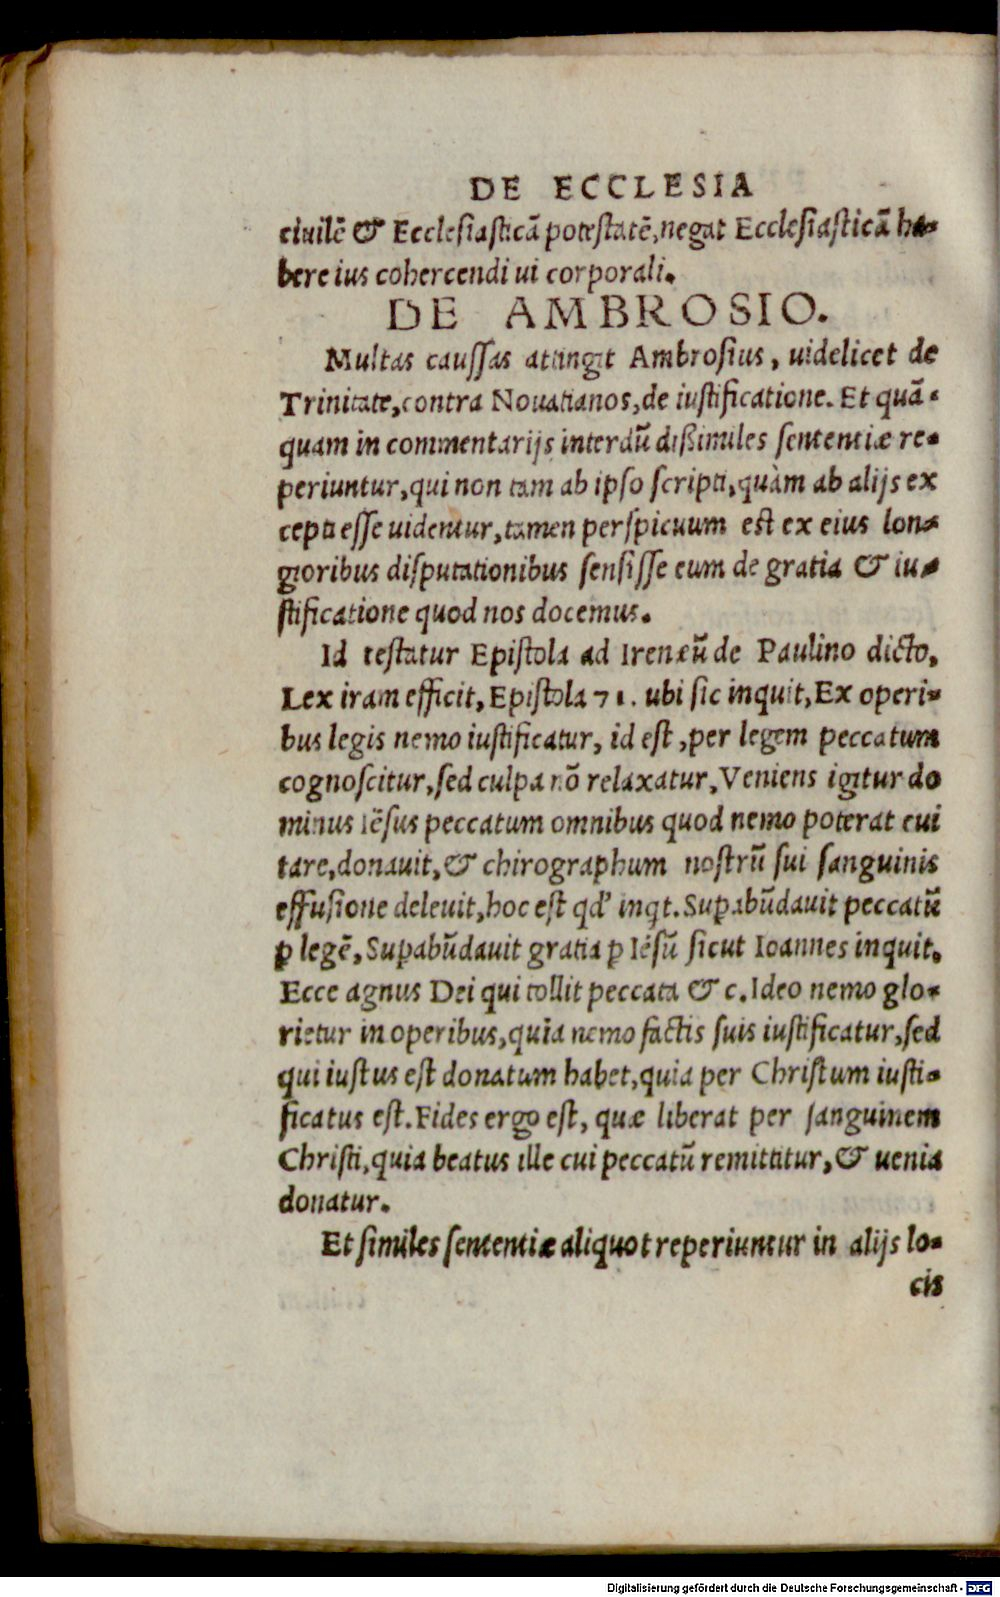 DE ECCLESIA
ciuilē & Ecclesiasticā potestatē, negat Ecclesiasticā ha-
bere ius cohercendi ui corporali.
DE AMBROSIO.
Multas caussas attingit Ambrosius, uidelicet de
Trinitate, contra Nouatianos, de iustificatione. Et quā-
quam in commentarijs interdū dißimiles sententiæ re-
periuntur, qui non tam ab ipso scripti, quàm ab alijs ex
cepti esse uidentur, tamen perspicuum est ex eius lon-
gioribus disputationibus sensisse eum de gratia & iu-
stificatione quod nos docemus.
Id testatur Epistola ad Irenæū de Paulino dicto,
Lex iram efficit, Epistola 71. ubi sic inquit, Ex operi-
bus legis nemo iustificatur, id est, per legem peccatum
cognoscitur, sed culpa nō relaxatur, Veniens igitur do
minus Iesus peccatum omnibus quod nemo poterat eui
tare, donauit, & chirographum nostrū sui sanguinis
effusione deleuit, hoc est qđ inqt. Supabūdauit peccatū
ꝑ legē, Supabūdauit gratia ꝑ Iesū sicut Ioannes inquit.
Ecce agnus Dei qui tollit peccata & c. Ideo nemo glo-
rietur in operibus, quia nemo factis suis iustificatur, sed
qui iustus est donatum habet, quia per Christum iusti-
ficatus est. Fides ergo est, quæ liberat per sanguinem
Christi, quia beatus ille cui peccatū remittitur, & uenia
donatur.
Et similes sententiæ aliquot reperiuntur in alijs lo-
cis
Digitalisierung gefördert durch die Deutsche Forschungsgemeinschaft - DFG